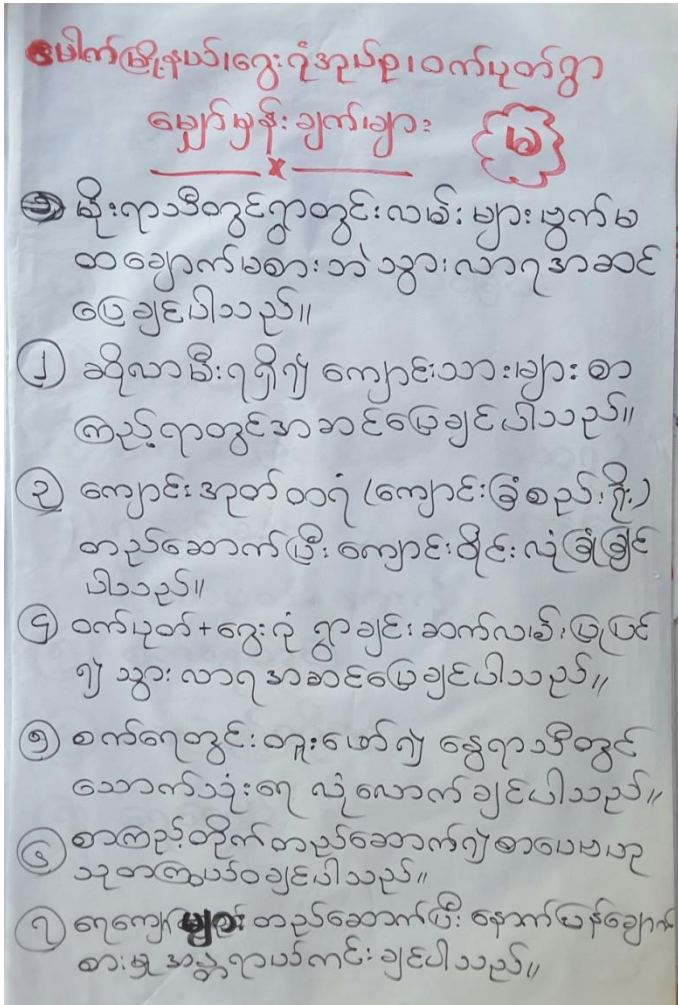 ပေါက်မြို့နယ်၊ ဂွေးဂုံအုပ်စု၊ ဝက်ပုတ်ရွာ
မျှော်မှန်းချက်များ
မ
၁ မိုးရာသီတွင်ရွာတွင်းလမ်းများဗွက်မ
ထချောက်မစားဘဲသွားလာရအဆင်
ပြေချင်ပါသည်။
၂ ဆိုလာမီးရရှိ၍ ကျောင်းသားများစာ
ကြည့်ရာတွင်အဆင်ပြေချင်ပါသည်။
၃ ကျောင်းအုတ်တာရံ (ကျောင်းခြံစည်းရိုး)
တည်ဆောက်ပြီးကျောင်းဝိုင်းလုံခြုံချင်
ပါသည်။
၄ ဝက်ပုတ်+ဂွေးဂုံ ရွာချင်းဆက်လမ်းပြုပြင်
၍ သွားလာရအဆင်ပြေချင်ပါသည်။
၅ စက်ရေတွင်းတူးဖော်၍ နွေရာသီတွင်
သောက်သုံးရေ လုံလောက်ချင်ပါသည်။
၆ စာကြည့်တိုက်တည်ဆောက်၍စာပေဗဟု
သုတကြွယ်ဝချင်ပါသည်။
၇ ရေကျော်များတည်ဆောက်ပြီး နောက်ပြန်ချောက်
စားမှုအန္တရာယ်ကင်းချင်ပါသည်။